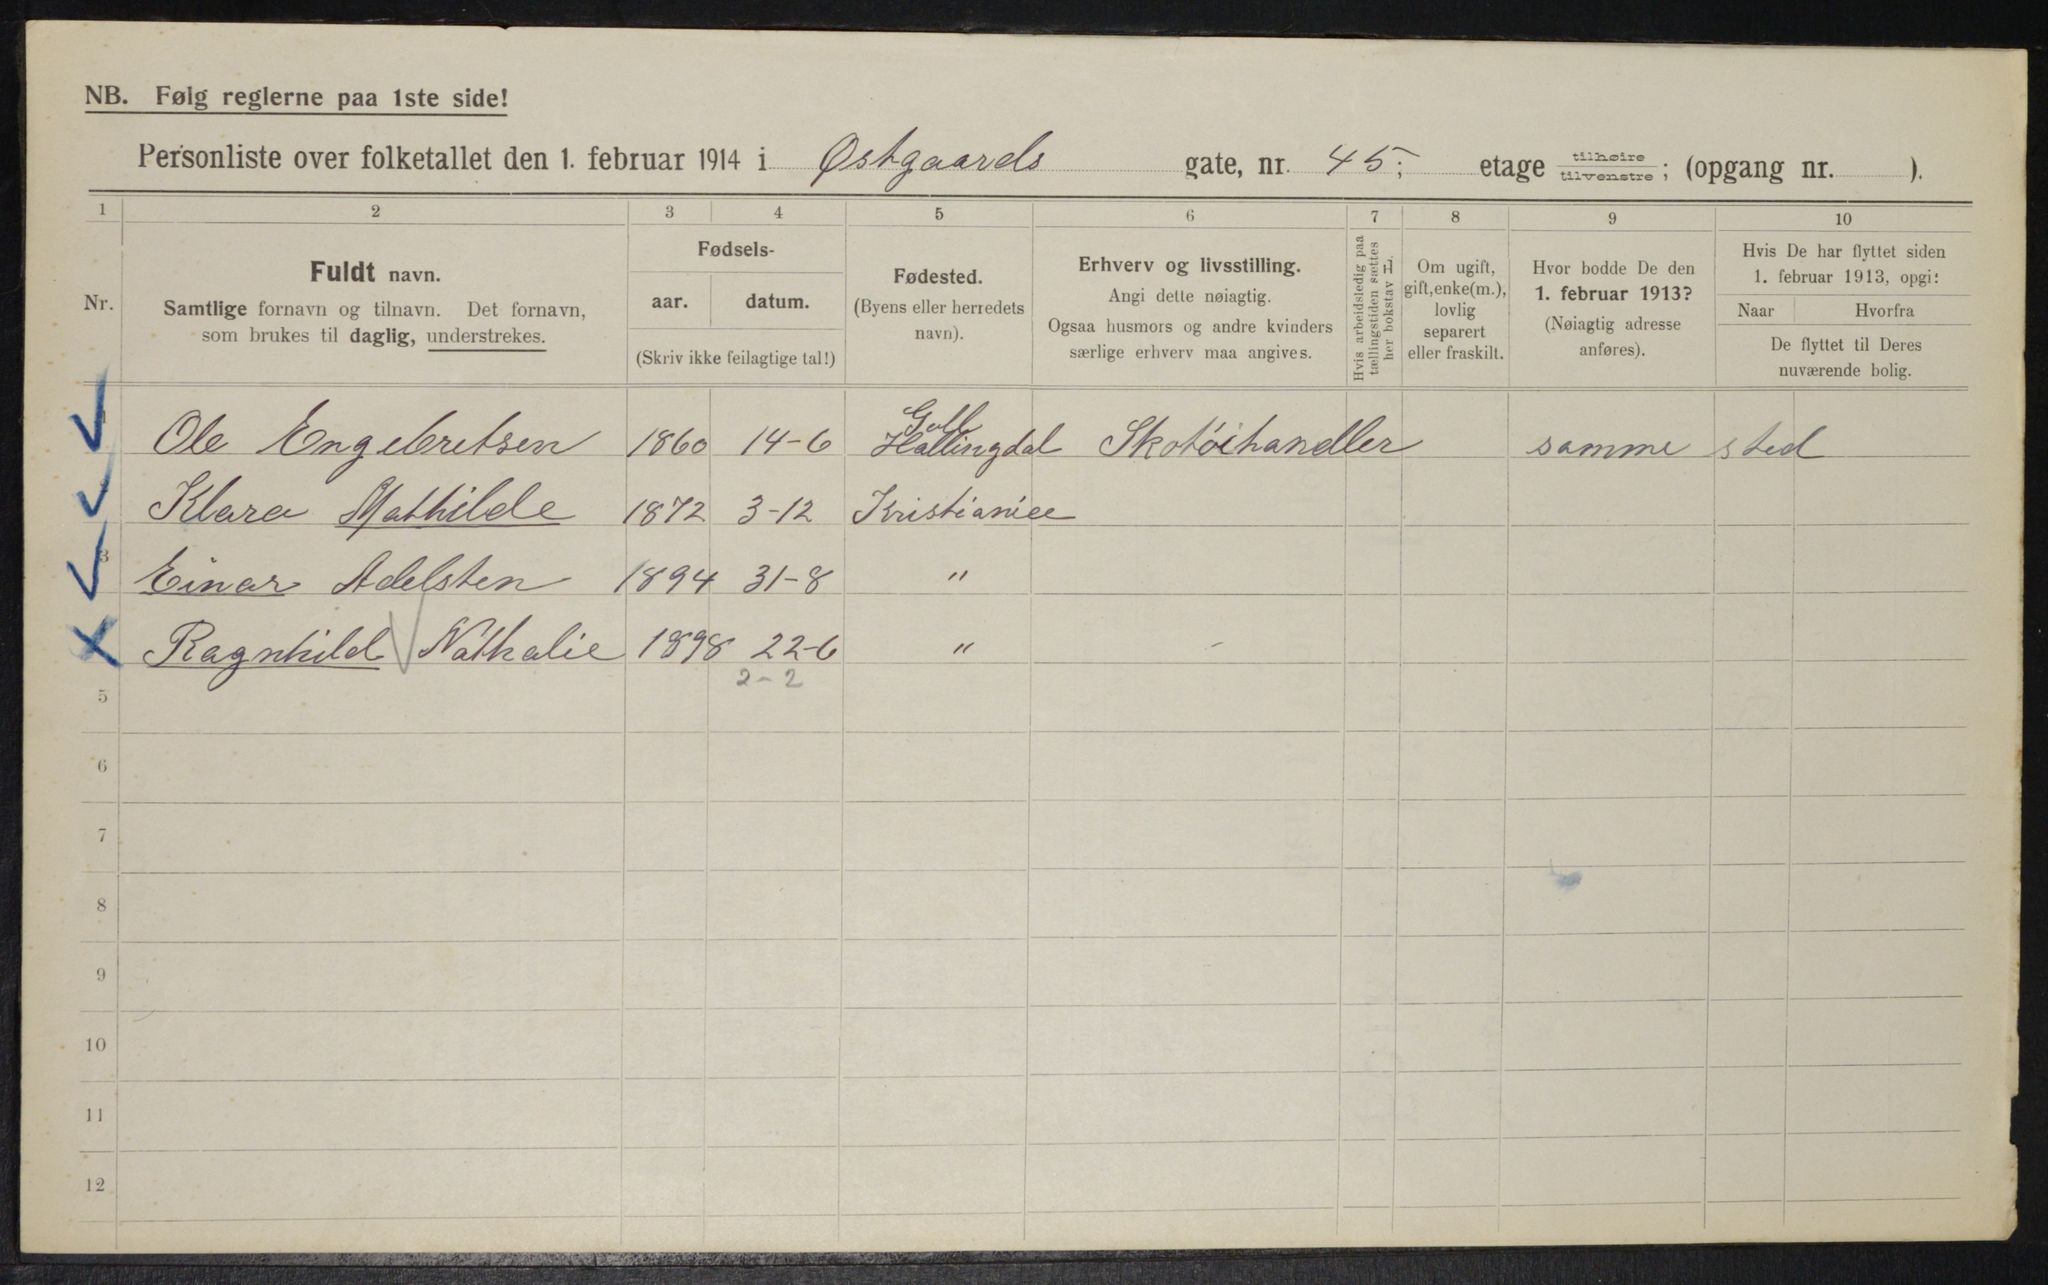 NB. Følg reglerne paa 1ste side!
Personliste over folketallet den 1. februar 1914 i Østgaards gate, nr. 45; etage tilhøire tilvenstre; (opgang nr. ).
1 2 3 4 5 6 7 8 9 10
Nr.
Fuldt navn.
Samtlige fornavn og tilnavn. Det fornavn,
som brukes til daglig, understrekes.
Fødsels-
aar. datum.
(Skriv ikke feilagtige tal!)
Fødested.
(Byens eller herredets
navn).
Erhverv og livsstilling.
Angi dette nøiagtig.
Ogsaa husmors og andre kvinders
særlige erhverv maa angives.
Hvis arbeidsledig paa
tællingstiden sættes
her bokstav L
Om ugift,
gift, enke(m.),
lovlig
separert
eller fraskilt.
Hvor bodde De den
1. februar 1913?
(Nøiagtig adresse
anføres).
Hvis De har flyttet siden
1. februar 1913, opgi:
Naar Hvorfra
De flyttet til Deres
nuværende bolig.
Ole Engebretsen 1860 14-6 Hallingdal Skotøihandler samme sted
Klara Mathilde 1872 3-12 Kristiania
3 Einar Adelsten 1894 31-8 "
Ragnhild Nathalie 1898 22-6 " -
2-2
5
6
7
8
9
10
11
12